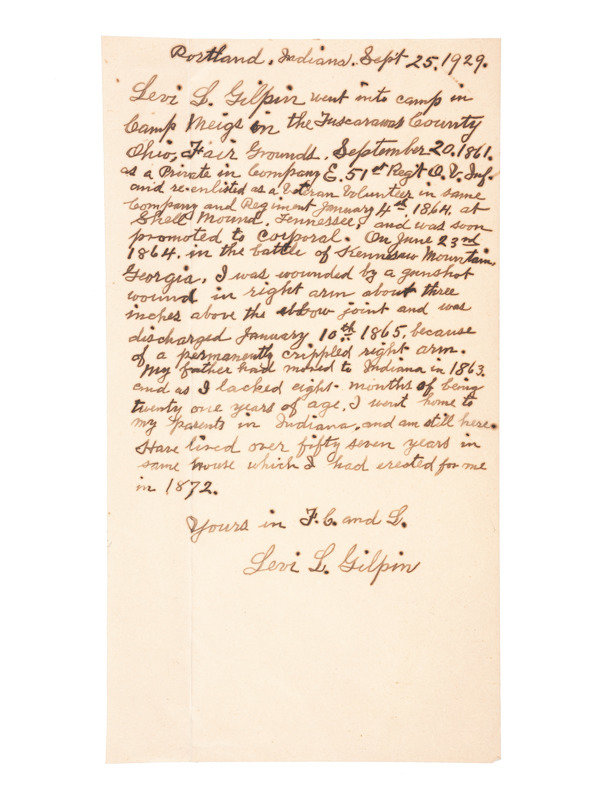 Portland, Indiana. Sept 25. 1929.
Levi L. Gilpin went into camp in
Camp Meigs in the Tuscarawas County
Ohio, Fair Grounds, September 20, 1861.
as a Private in Company E. 51st Regt O. V. Inf.
and re-enlisted as a Veteran Volunteer in same
Company and Regiment January 4th 1864. at
Shell Mound, Tennessee, and was soon
promoted to Corporal. On June 23rd
1864. in the battle of Kennesaw Mountain,
Georgia, I was wounded by a gunshot
wound in right arm about three
inches above the elbow joint and was
discharged January 10th 1865, because
of a permanently crippled right arm.
My father had moved to Indiana in 1863.
and as I lacked eight months of being
twenty one years of age, I went home to
my parents in Indiana, and am still here.
Have lived over fifty seven years in
same house which I had erected for me
in 1872.
Yours in F. C. and L.
Levi L. Gilpin